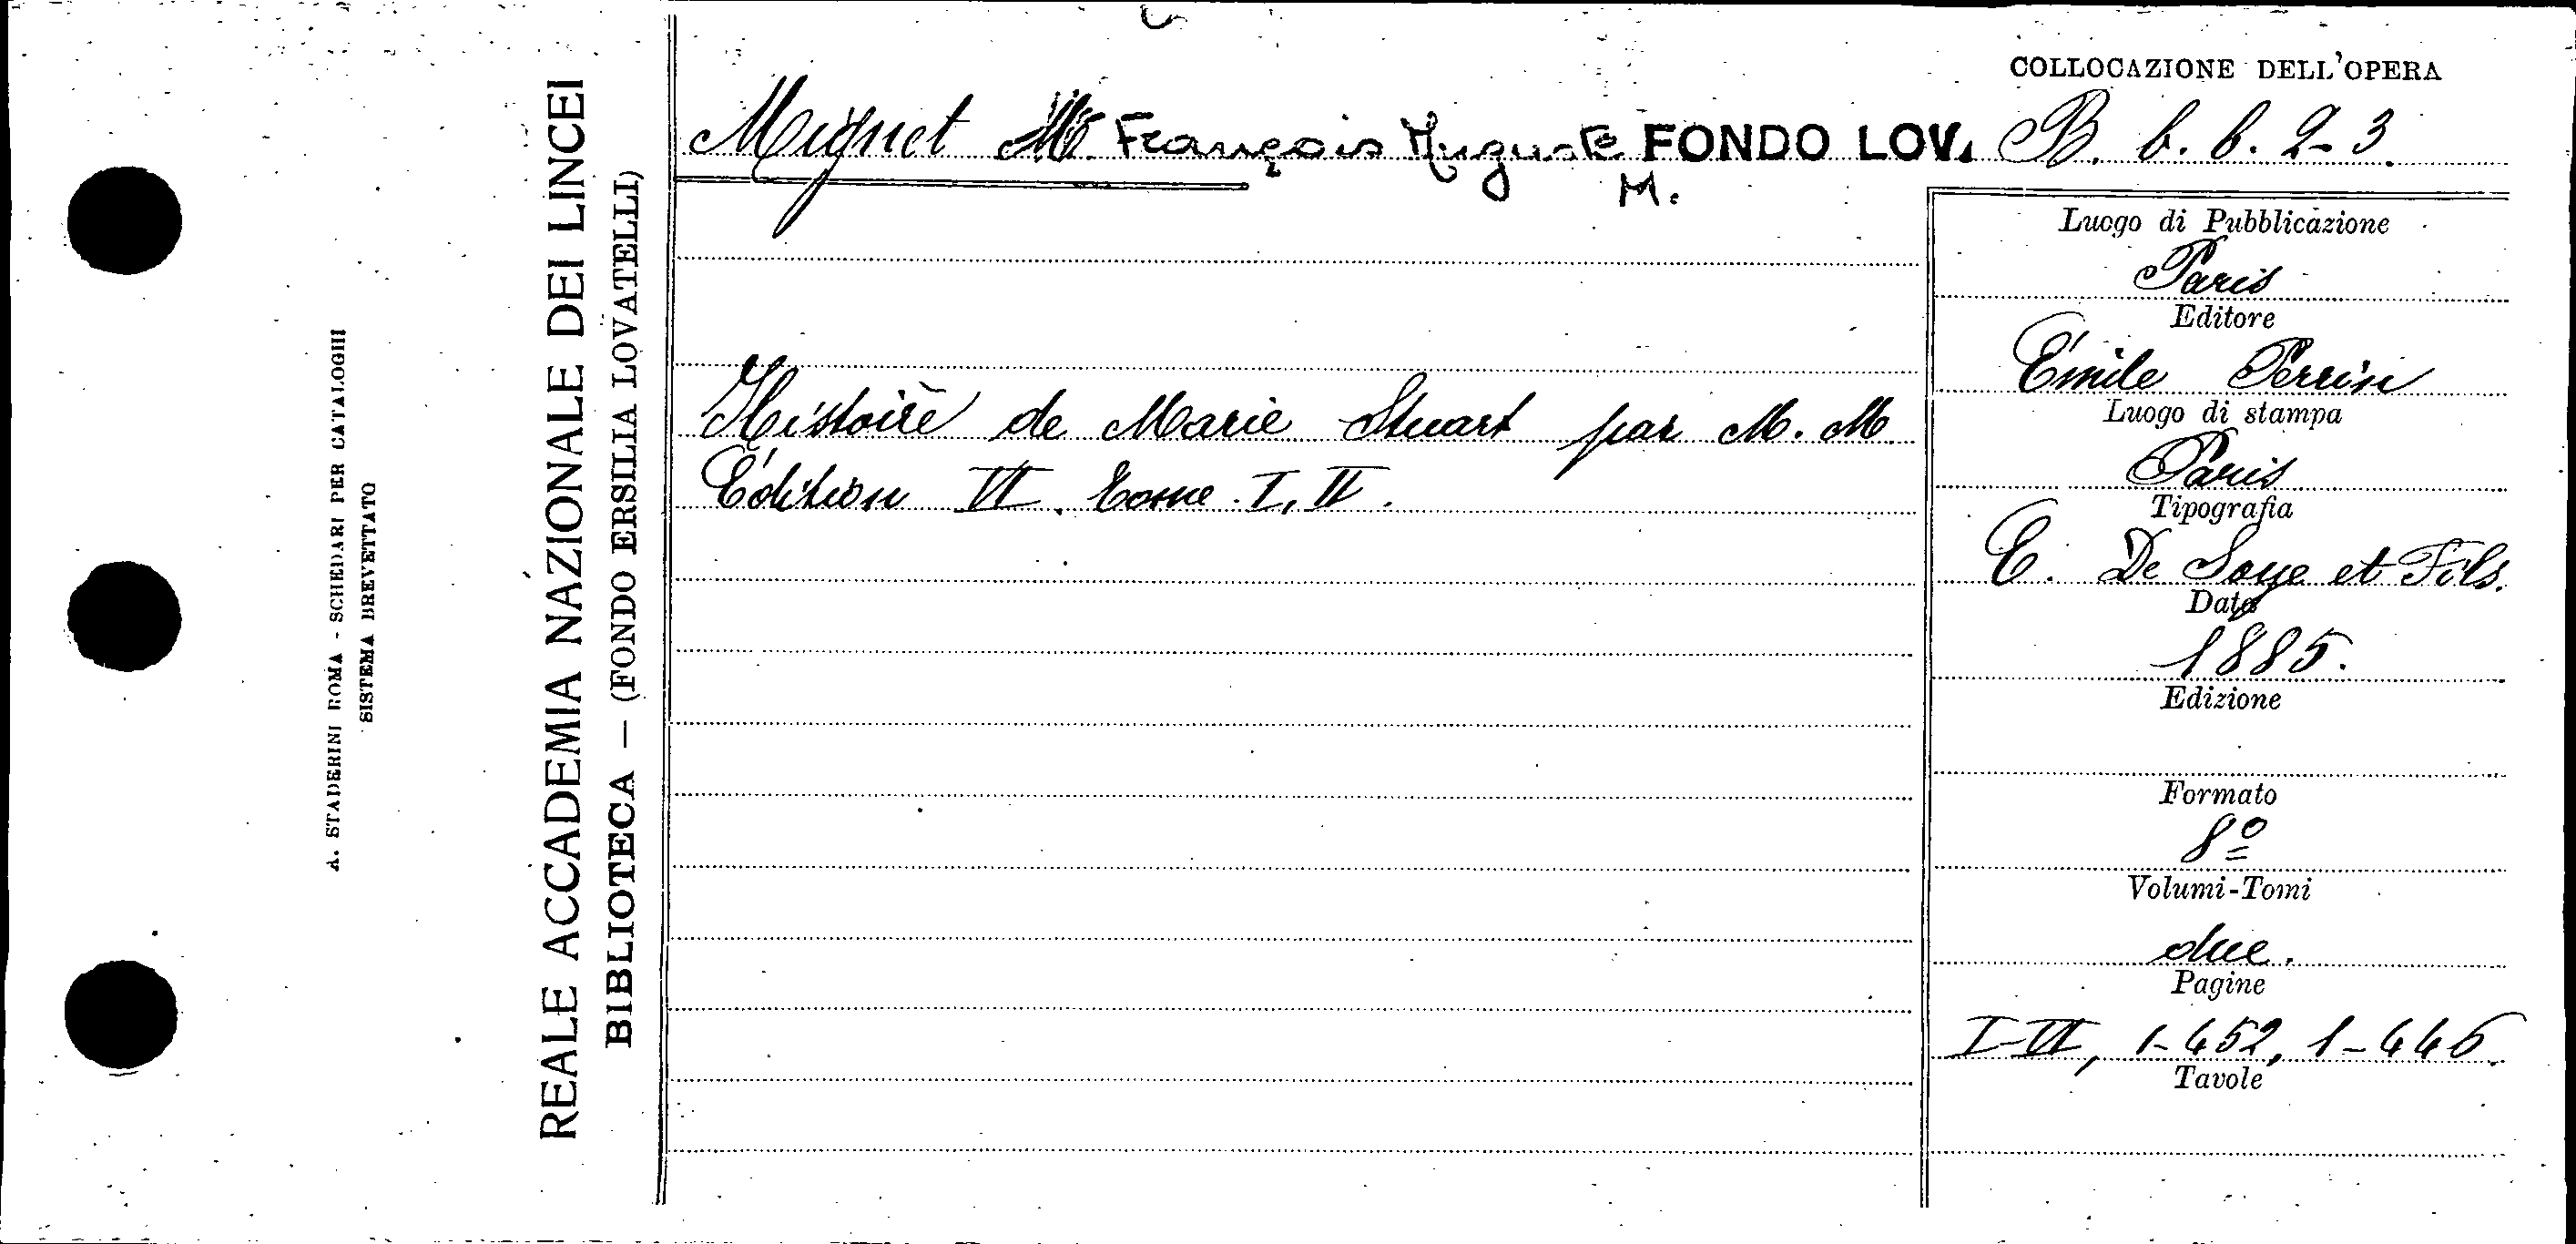 A. STADERINI ROMA - SCHEDARI PER CATALOGHI
SISTEMA BREVETTATO
REALE ACCADEMIA NAZIONALE DEI LINCEI
BIBLIOTECA — (FONDO ERSILIA LOVATELLI)
Mignet François Auguste FONDO LOV.
M.
Histoire de Marie Stuart par M. M
Édition VI. Tome I, II.
COLLOCAZIONE DELL'OPERA
B. b. b. 2-3.
Luogo di Pubblicazione
Paris
Editore
Émile Perrin
Luogo di stampa
Paris
Tipografia
E. De Soye et Fils.
Data
1885.
Edizione
Formato
8º
Volumi-Tomi
due.
Pagine
I-VI, 1-452, 1-446.
Tavole